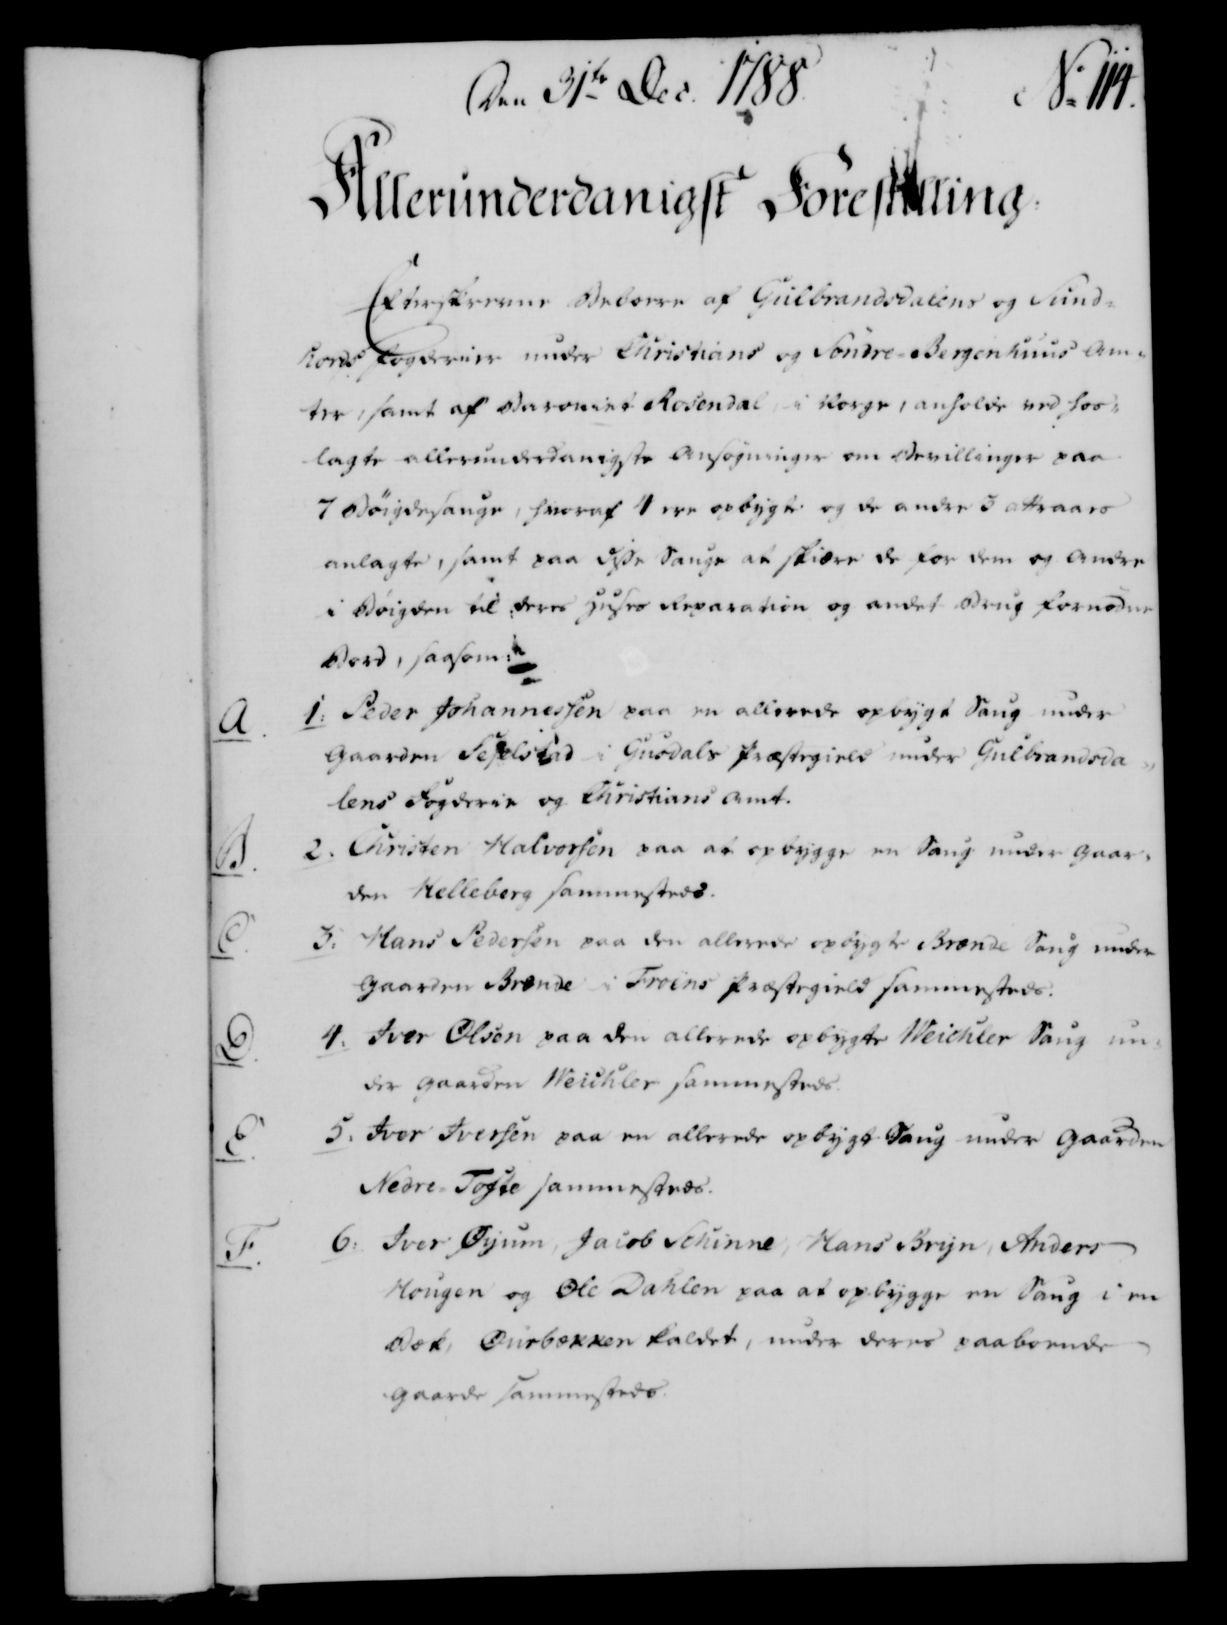 Den 31te Dec. 1788. No 114.
Allerunderdanigst Forestilling.
Efterskrevne Beboere af Gulbrandsdalens og Sund-
hords Fogderier under Christians og Søndre-Bergenhuus Am-
ter, samt af Baroniet Rosendal, i Norge, anholde ved hos-
lagte allerunderdanigste Ansøgninger om Bevillinger paa
7 Bøigdesauge, hvoraf 4 ere opbygte og de andre 3 attraaes
anlagte, samt paa disse Sauge at skiære de for dem og Andre
i Bøigden til deres Huses Reparation og andet Brug fornødne
Bord, saasom:
A. 1. Peder Johannessen paa en allerede opbygt Saug under
Gaarden Seselstad i Gusdals Præstegield under Gulbrandsda-
lens Fogderie og Christians Amt.
B. 2. Christen Halvorsen paa at opbygge en Saug under Gaar-
den Helleberg sammesteds.
C. 3. Hans Pedersen paa den allerede opbygte Brænde Saug under
Gaarden Brænde i Froens Præstegield sammesteds.
D. 4. Iver Olsen paa den allerede opbygte Weichler Saug un-
der Gaarden Weichler sammesteds.
E. 5. Iver Iversen paa en allerede opbygt Saug under Gaarden
Nedre-Tofte sammesteds.
F. 6. Iver Øyum, Jacob Schinne, Hans Bryn, Anders
Hougen og Ole Dahlen paa at opbygge en Saug i en
Bæk, Øurbækken kaldet, under deres paaboende
Gaarde sammesteds.